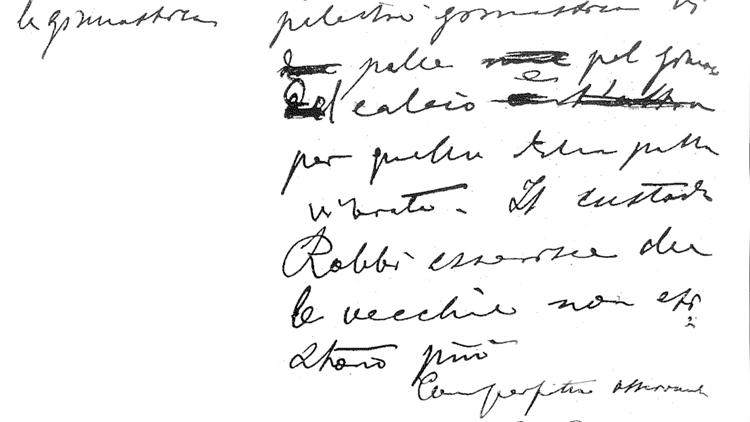 la ginnastica
palestra ginnastica vi
palle pel gioco
del calcio e
per quella della palla
vibrata. Il custode
Robbi asserisce che
le vecchie non esi
stono più
Con perfetta osservanza